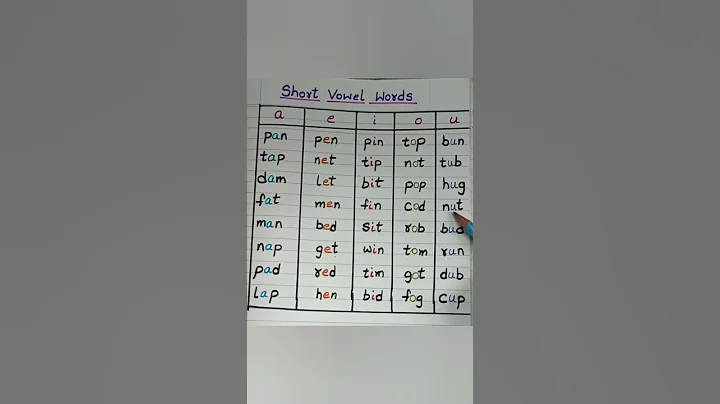 Short Vowel Words
a e i o u
pan pen pin top bun
tap net tip not tub
dam let bit pop hug
fat men fin cod nut
man bed sit rob bud
nap get win tom run
pad red tim got dub
lap hen bid fog cup